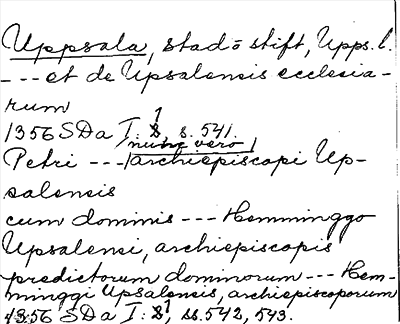 Uppsala, stad o stift, Upps. l.
--- et de Upsalensis ecclesia-
rum
1356 SDa I: 1, s. 541.
nunc vero
Petri --- archiepiscopi Up-
salensis
cum dominis --- Hemminggo
Upsalensi, archiepiscopis
predictorum dominorum --- Hem-
minggi Upsalensis, archiepiscoporum
1356 SDa I: 1, ss. 542, 543.